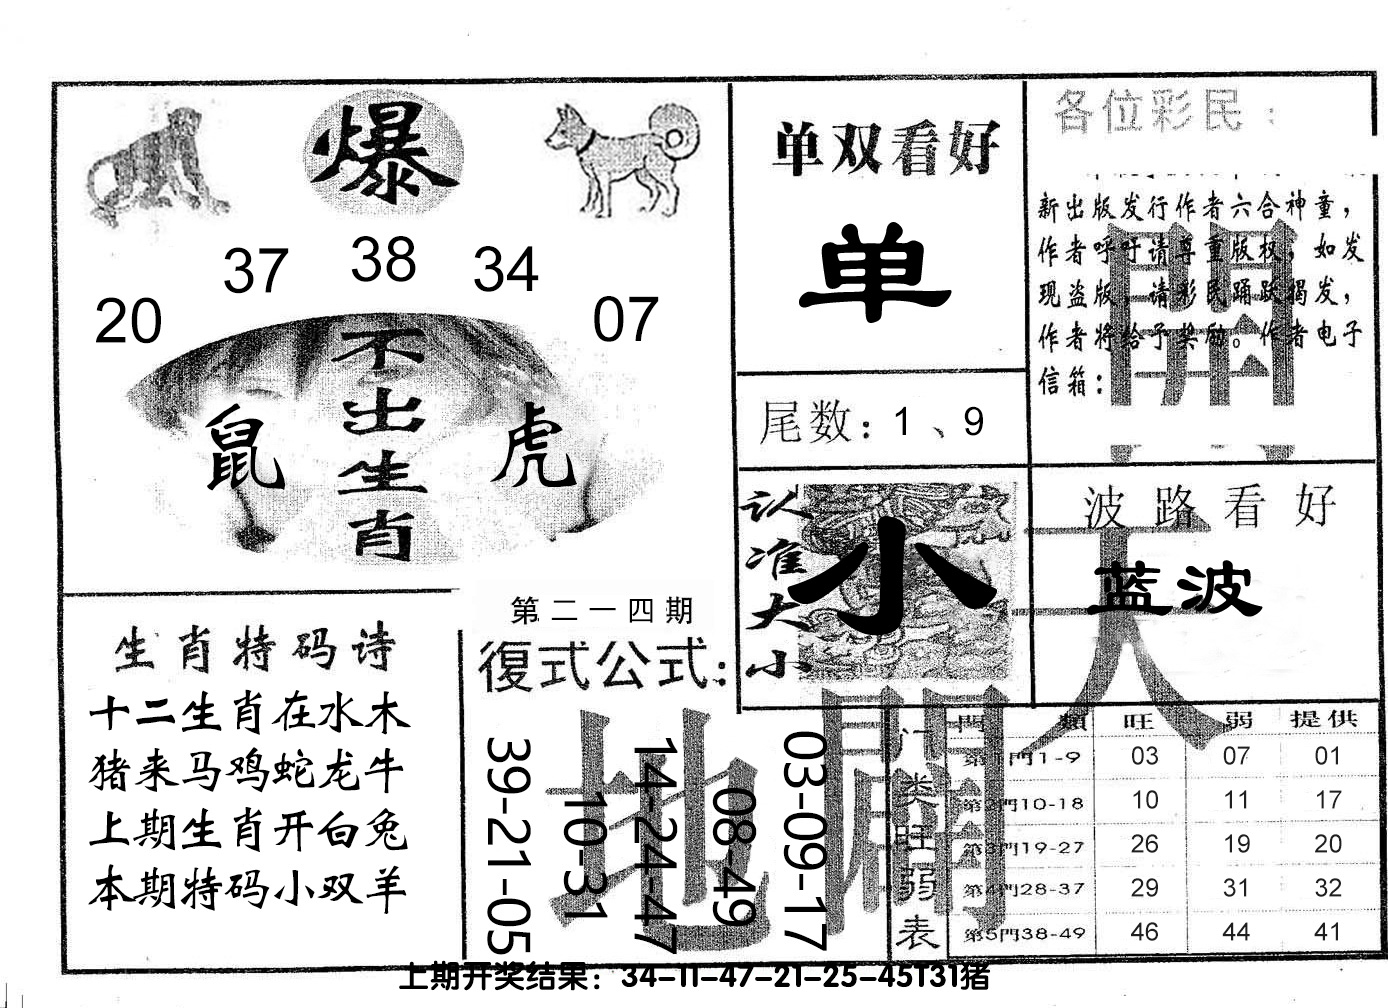 爆
37 38 34
20 07
不出生肖
鼠 虎
单双看好
单
尾数：1、9
各位彩民：
新出版发行作者六合神童，
作者呼吁请尊重版权，如发
现盗版，请彩民踊跃揭发，
作者将给予奖励。作者电子
信箱：
認准大小
小
波路看好
蓝波
生肖特码诗
十二生肖在水木
猪来马鸡蛇龙牛
上期生肖开白兔
本期特码小双羊
第二一四期
復式公式：
39-21-05
10-31
14-24-47
08-49
03-09-17
天
開
地
闢
门类旺弱表
門類 旺 弱 提供
第1門1-9 03 07 01
第2門10-18 10 11 17
第3門19-27 26 19 20
第4門28-37 29 31 32
第5門38-49 46 44 41
上期开奖结果：34-11-47-21-25-45T31猪